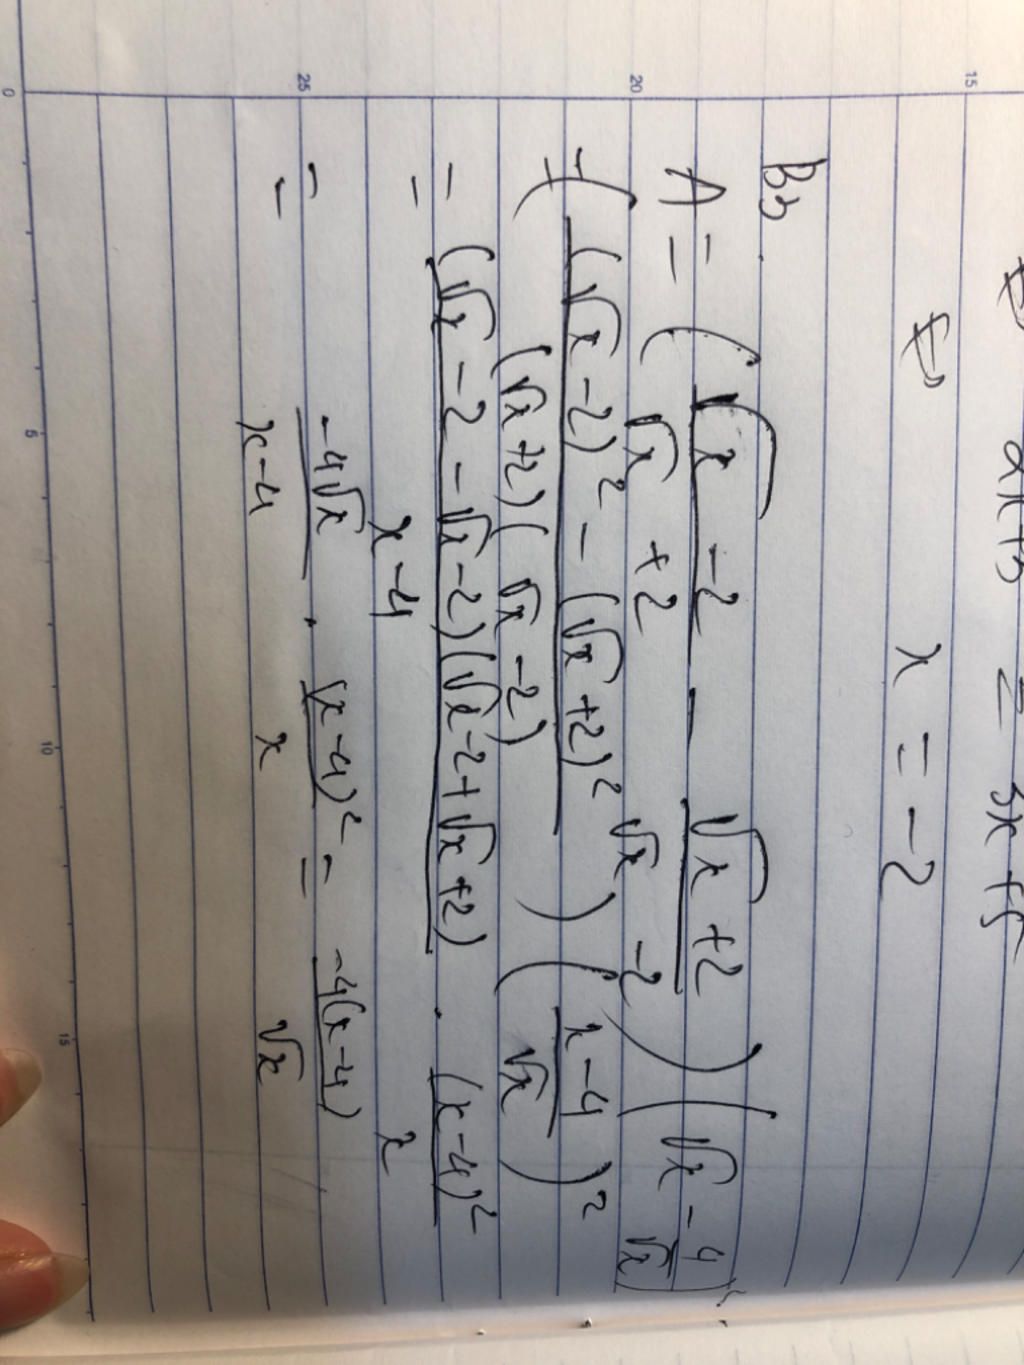 2x+3 = 3x+5
x = -2
B3
A = ( (√x -2)/(√x +2) - (√x +2)/(√x -2) ) (√x - 4/√x)²
= ( ((√x -2)² - (√x +2)²)/((√x +2)(√x -2)) ) ( (x-4)/√x )²
= ((√x -2 - √x -2)(√x -2 + √x +2))/(x-4) . (x-4)²/x
= (-4√x)/(x-4) . (x-4)²/x = (-4(x-4))/√x
15 20 25
0 5 10 15